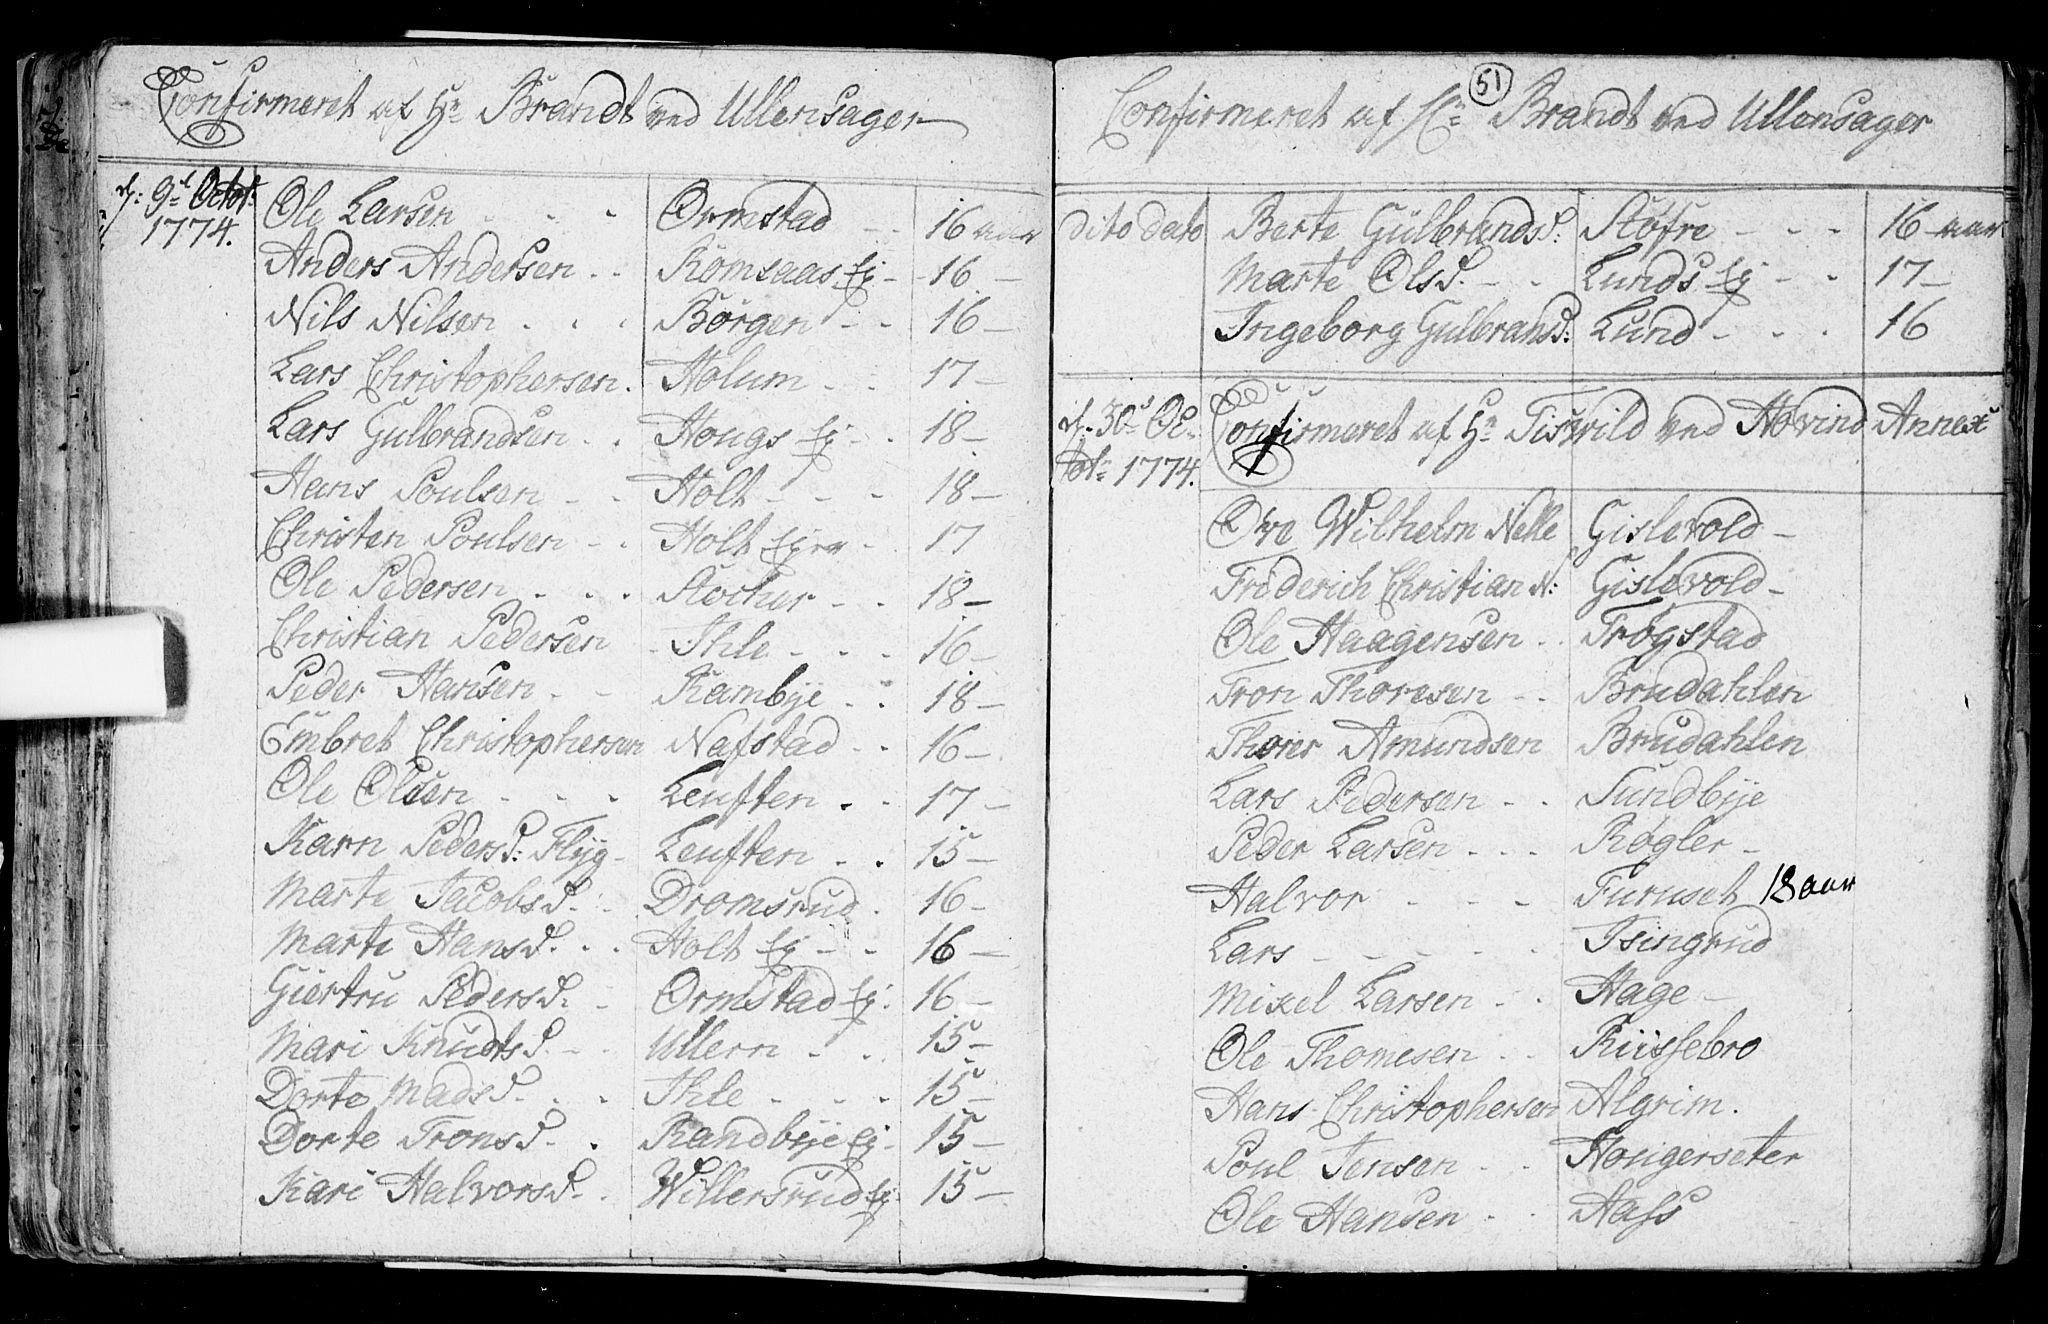 Confirmeret af Hr Brandt ved Ullensager
d: 9de Octob: Ole Larsen Ormstad 16 aar
1774.
Anders Andersen Romsaas Ej 16
Nils Nilsen Börgen 16
Lars Christophersen Holum 17
Lars Gulbrandsen Hougs Ej 18
Hans Poulsen Holt 18
Christen Poulsen Holt 17
Ole Pedersen 18
Christian Pedersen Ihle 16
Peder Hansen Rambye 18
Embret Christophersen Nafstad 16
Ole Olsen Leuften 17
Karn Pedersd: Flÿg Leuften 15
Marte Jacobsd. Dromsrud 16
Marte Hansd. Holt Ej 16
Giertru Pedersd: Ormstad Ej 16
Mari Knudtsd. Ullern 15
Dorte Madsd. Ihle 15
Dorte Tronsd. Randbye Ej 15
Kari Halvorsd. Willersrud Ej 15
51
Confirmeret af Hr Brandt ved Ullensager
dito dato Berte Gulbrandsd: Støfre 16 aar
Marte Olsd. Lunds Ej 17
Ingeborg Gulbransd: Lund 16
d. 30de Oc- Confirmeret af Hr Tisvild ved Hovind Annex
tobr 1774.
Ove Wilhelm Nelle Gislevold
Friderich Christian N: Gislevold
Ole Haagensen Trøgstad
Tron Thoresen Brudahlen
Thorer Amundsen Brudahlen
Lars Pedersen Sundbye
Peder Larsen Røgler
Halvor Furuset 18 aar
Lars Tsingrud
Mixel Larsen Hage
Ole Thomesen Riissebro
Hans Christophersen Algrim.
Poul Jensen Hougerseter
Ole Hansen Aass